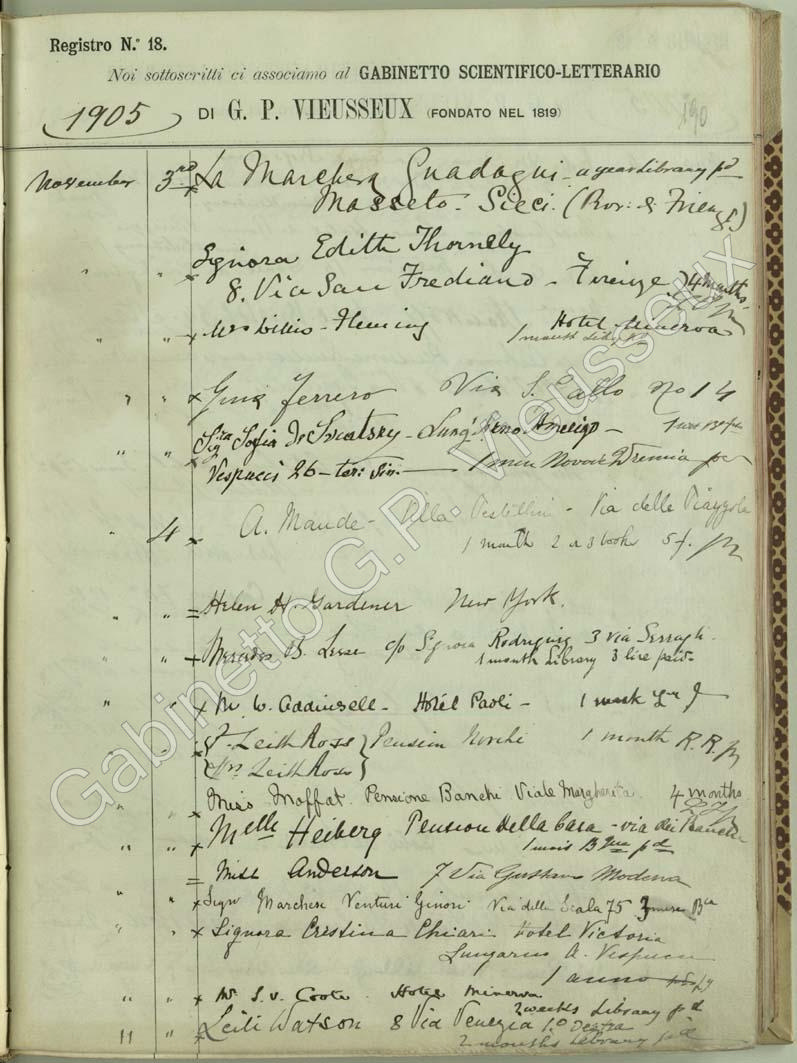 Registro N.º 18.
Noi sottoscritti ci associamo al GABINETTO SCIENTIFICO-LETTERARIO
1905 DI G. P. VIEUSSEUX (FONDATO NEL 1819)
190
November 3rd La Marchesa Guadagni - a year Library pd
Masseto. Sieci. (Prov: di Firenze)
" " x Signora Edith Thornely
8. Via San Frediano - Firenze 4 months
" " x Mrs Willis-Fleming Hotel Minerva
1 month
" " x Gina Ferrero Via S. Gallo No 14
Sofia De Lung' Arno Amerigo -
" " x Vespucci 26 - 1 mese
4 x A. Maude - Villa - Via delle Piazzola
1 month 2 a 3 books 5 f.
" " = Helen H. Gardener New York.
" " x B. c/o Signora Rodriguez 3 Via Serragli
1 month Library 3 lire paid
" " x M W. Addinsell - Hotel Paoli - 1
" " x F. Leith Ross Pension 1 month R.R.
Mrs Leith Ross
" " x Miss Moffat. Pensione Banchi Viale Margherita. 4 months
" " x Melle Heiberg Pension della Casa - via dei
1 mois pd
" " = Miss Anderson 7 Via Gustavo Modena
" " x Marchese Venturi Ginori Via della Scala 75
" " x Signora Cristina Chiari Hotel Victoria
Lungarno A. Vespucci
1 anno
" " x Mr S. V. Coote. Hotel Minerva
2 weeks Library pd
" " x Leili Watson 8 Via Venezia 1o Destra
2 months Library pd
Gabinetto G.P. Vieusseux